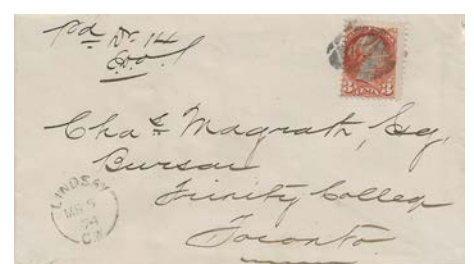 pd Dr. 14
Chas Magrath, Esq.
Bursar
Trinity College
Toronto
3 CENTS 3
LINDSAY
MR 5
C.W